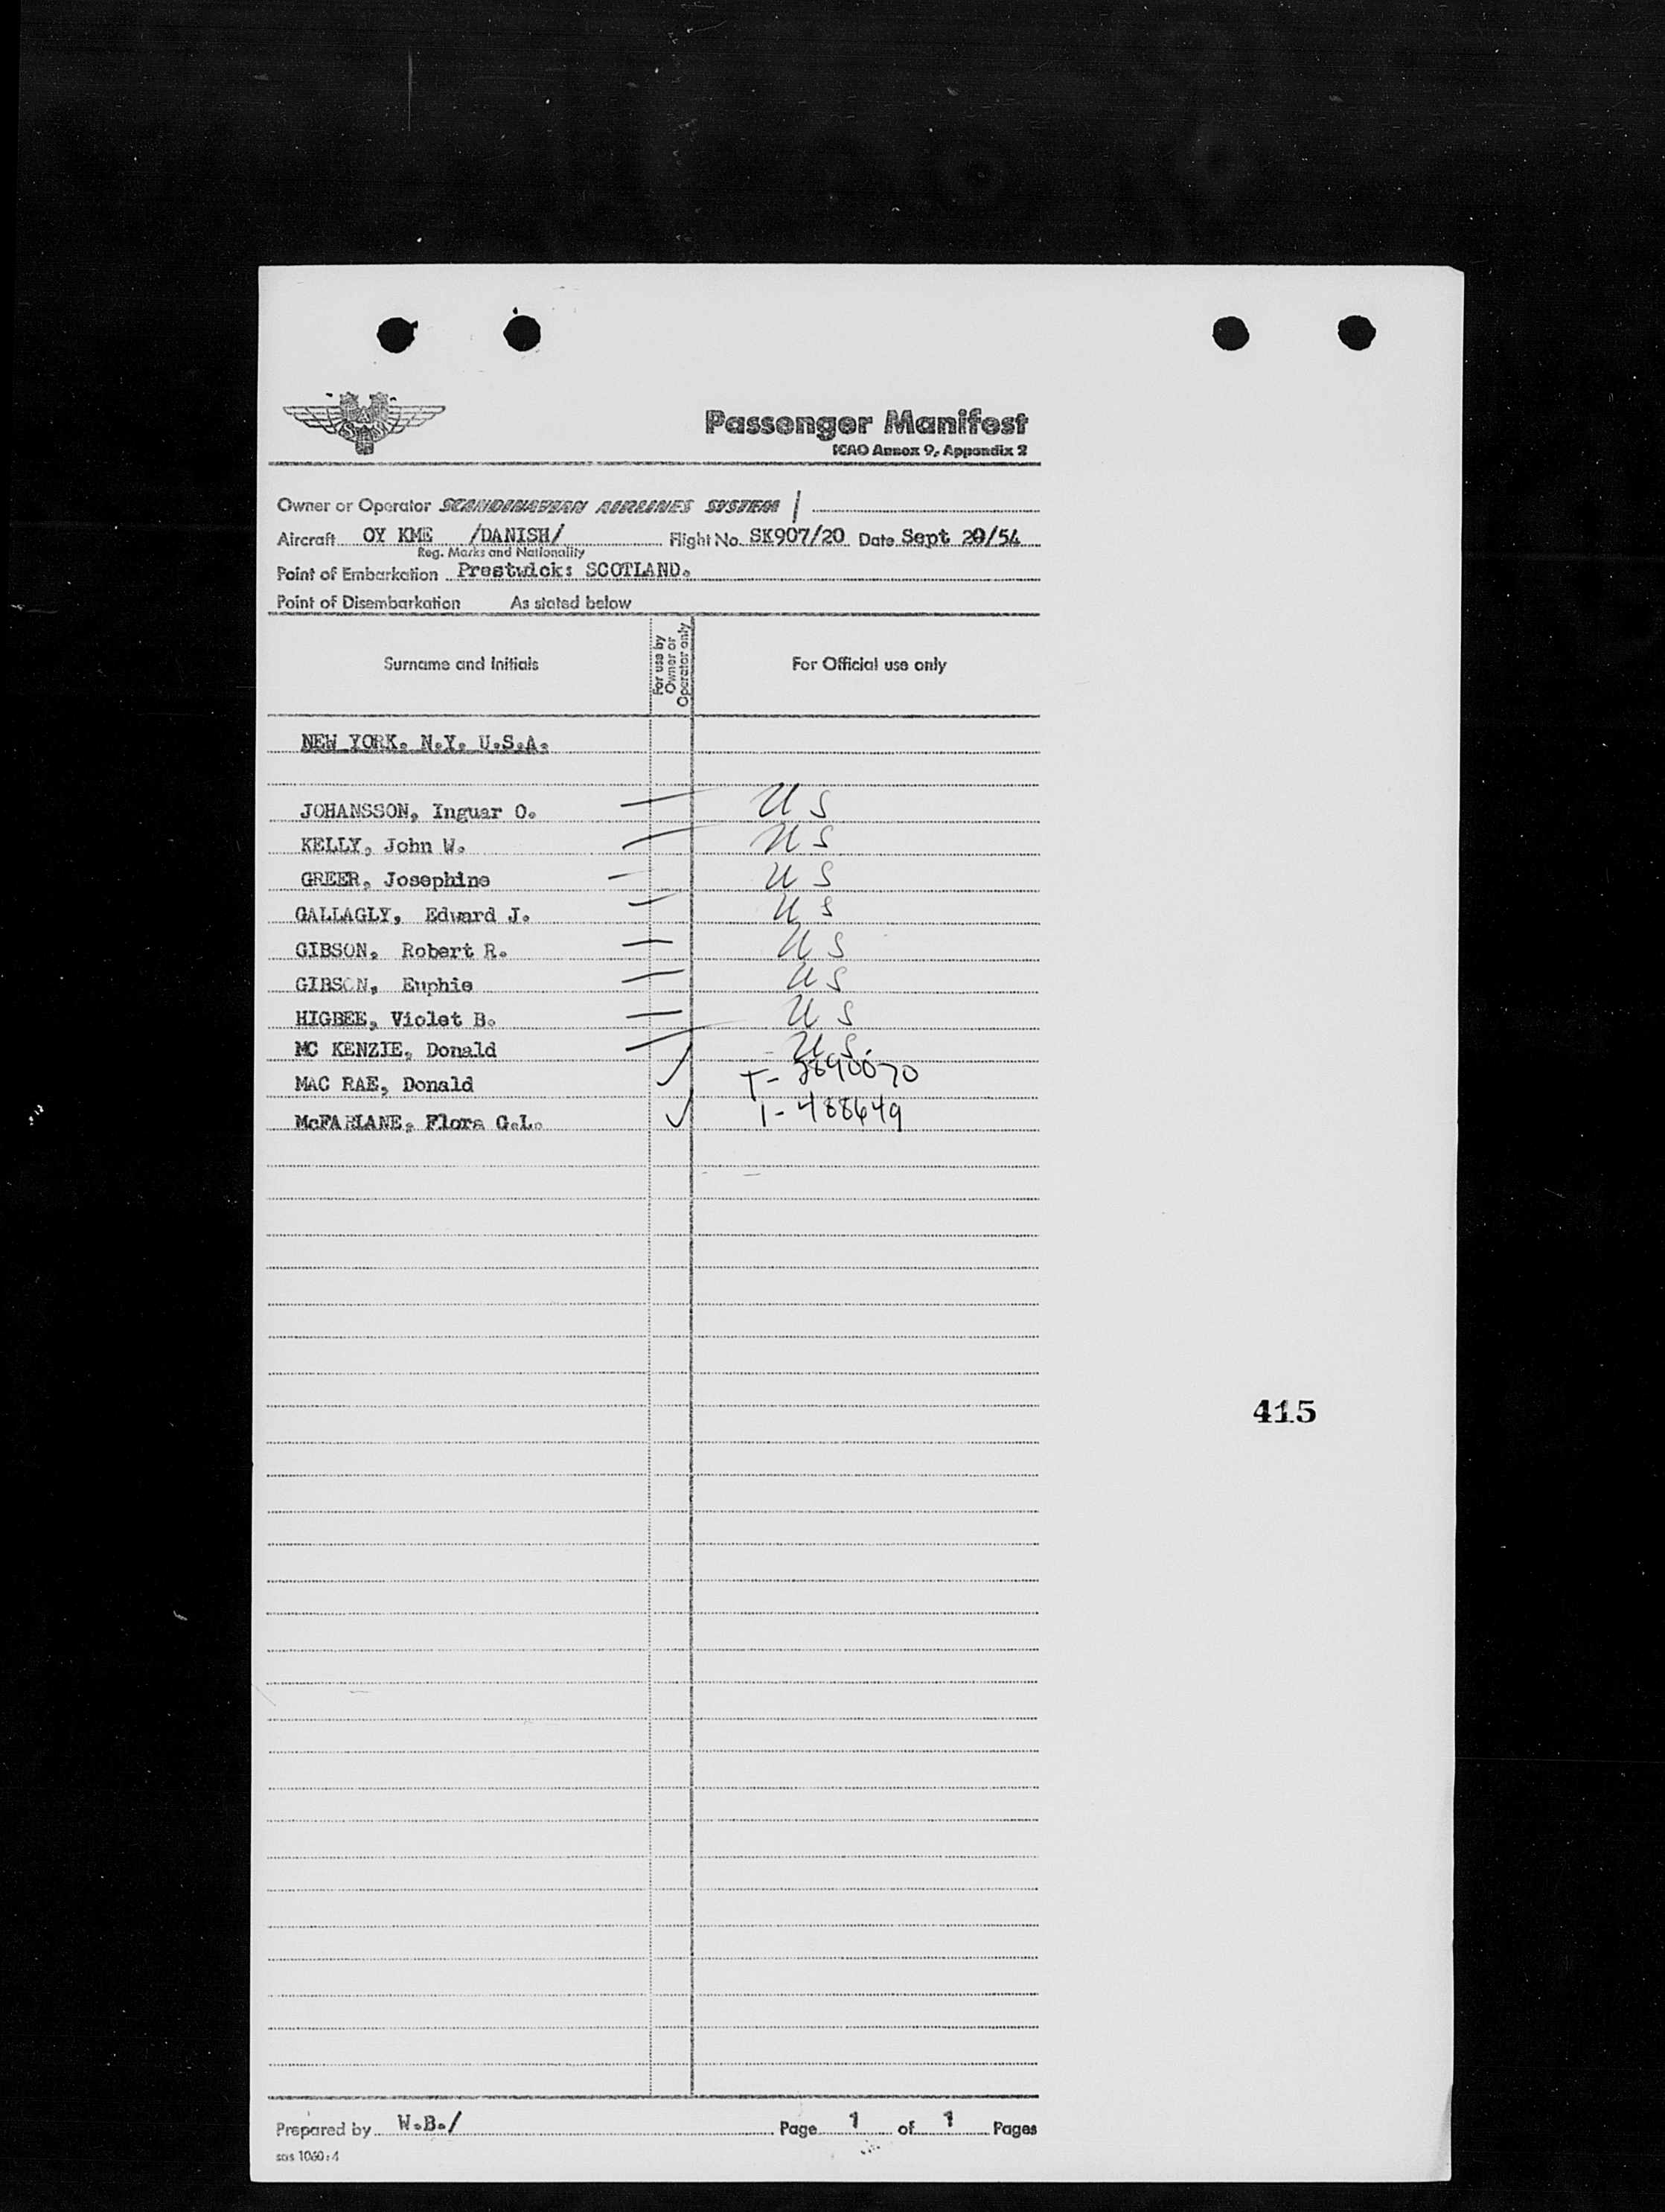 SAS
Passenger Manifest
ICAO Annex 9, Appendix 2
Owner or Operator SCANDINAVIAN AIRLINES SYSTEM /
Aircraft OY KME /DANISH/ Flight No. SK907/20 Date Sept 20/54
Reg. Marks and Nationality
Point of Embarkation Prestwick: SCOTLAND.
Point of Disembarkation As stated below
Surname and Initials For use by Owner or Operator only For Official use only
NEW YORK. N.Y. U.S.A.
JOHANSSON, Inguar O. US
KELLY, John W. US
GREER, Josephine US
GALLAGLY, Edward J. US
GIBSON, Robert R. US
GIBSON, Euphie US
HIGBEE, Violet B. US
MC KENZIE, Donald US.
MAC RAE, Donald T-2690070
McFARLANE, Flora G.L. 1-488649
415
Prepared by W.B./ Page 1 of 1 Pages
sas 1060:4